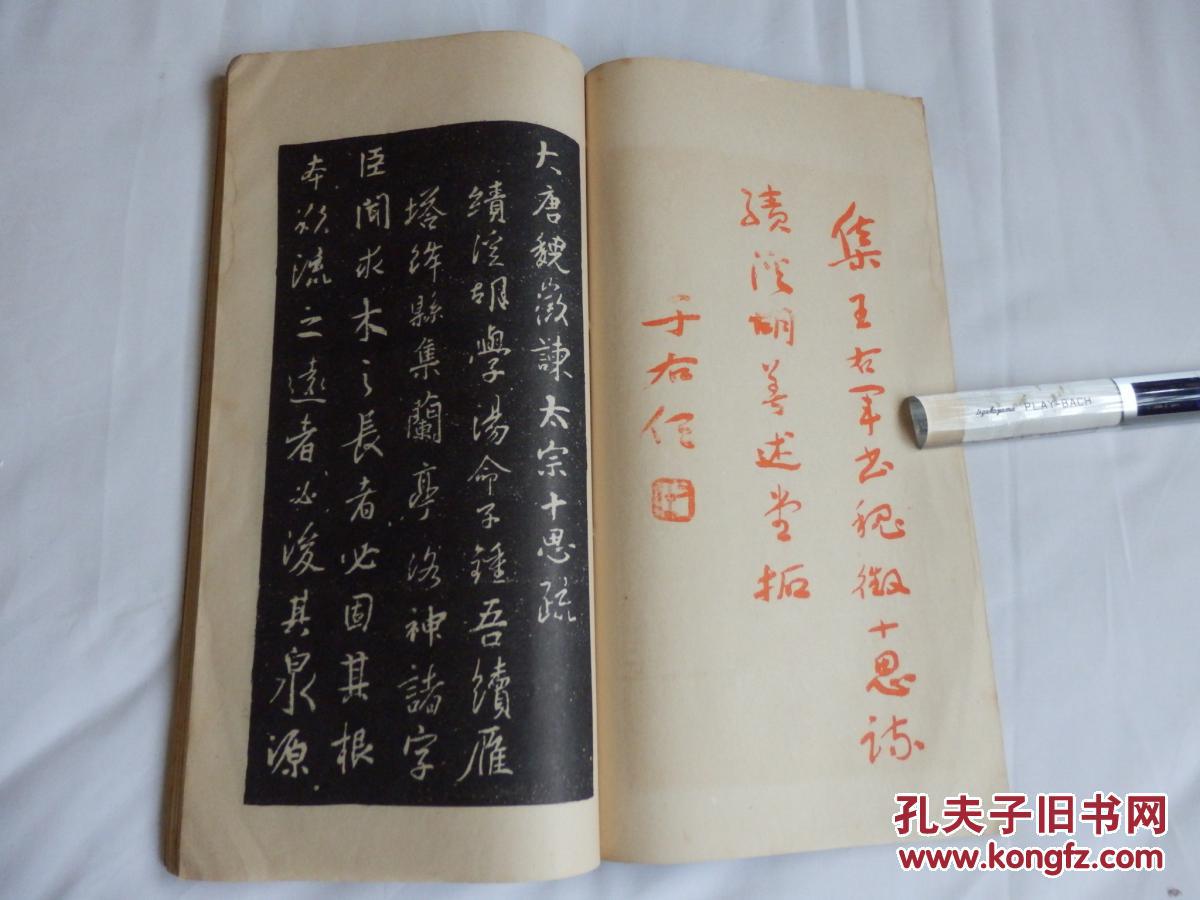 集王右军书魏徵十思疏
绩溪胡善述堂拓
于右任
大唐魏徵諫太宗十思疏
績溪胡學湯命子鍾吾續雁
塔絳縣集蘭亭洛神諸字
臣聞求木之長者必固其根
本欲流之遠者必浚其泉源
PLAY-BACH
孔夫子旧书网
www.kongfz.com